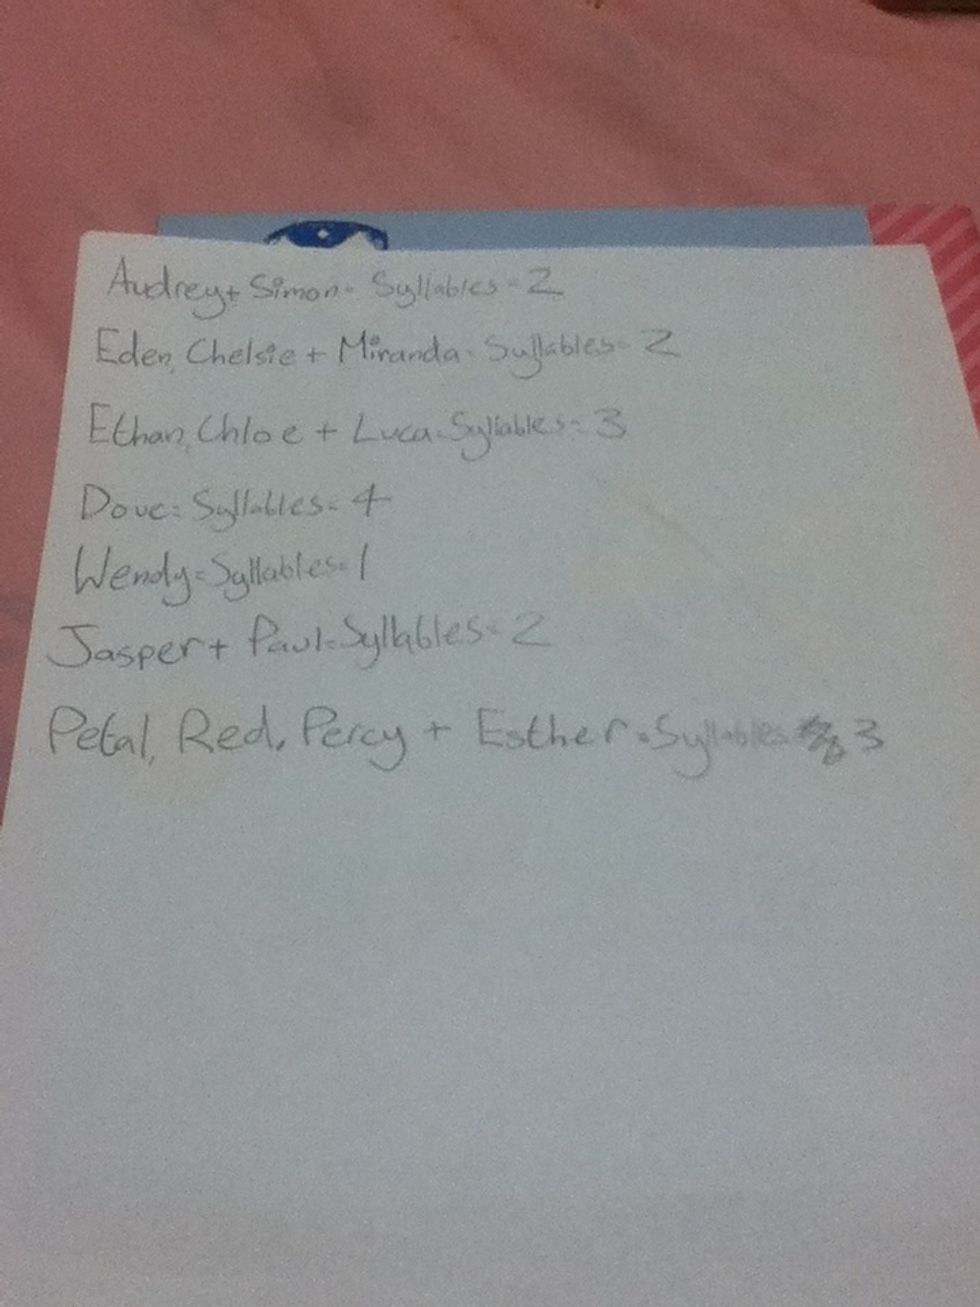 Audrey + Simon = Syllables = 2
Eden, Chelsie + Miranda = Syllables = 2
Ethan, Chloe + Luca = Syllables = 3
Dove = Syllables = 4
Wendy = Syllables = 1
Jasper + Paul = Syllables = 2
Petal, Red, Percy + Esther = Syllables 3